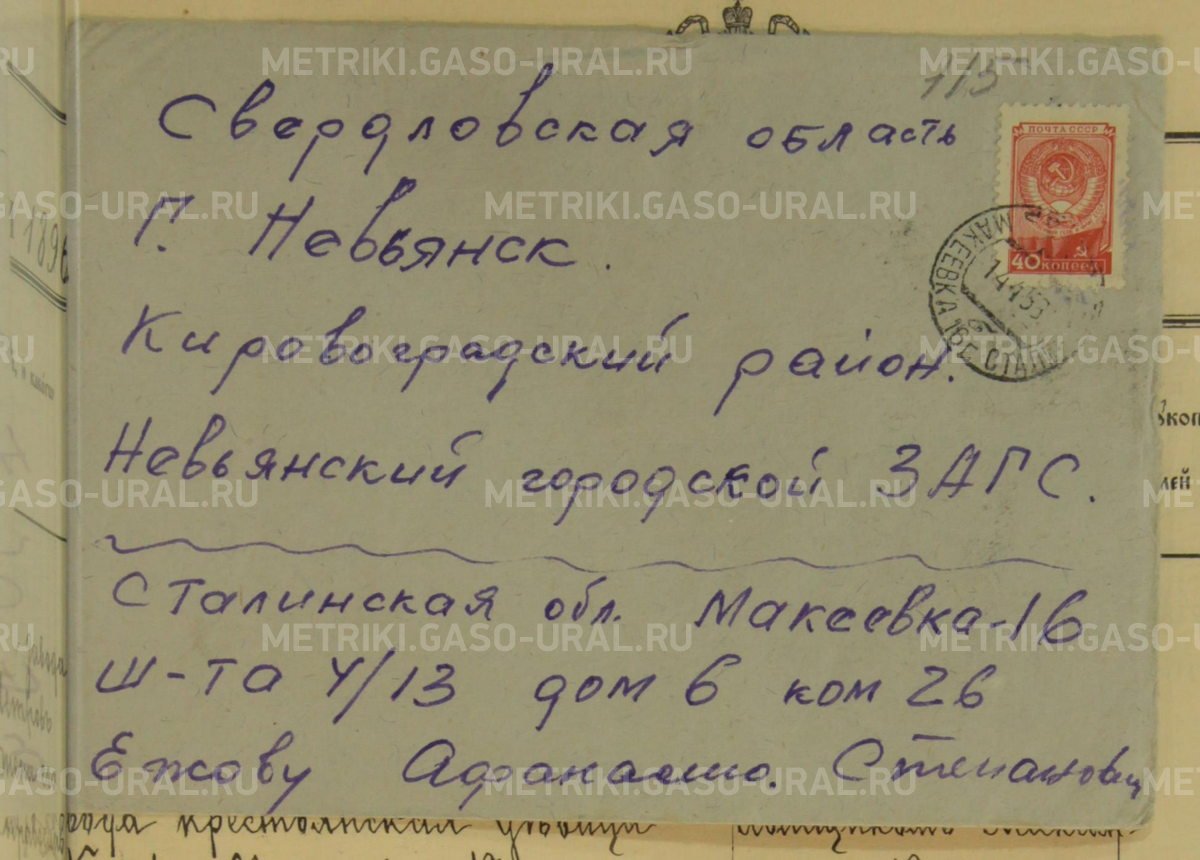 METRIKI.GASO-URAL.RU
1/5
Свердловская область
ПОЧТА СССР
40 КОПЕЕК
Г. Невьянск.
МАКЕЕВКА
14 4 53
Кировоградский район.
Невьянский городской ЗАГС.
Сталинская обл. Макеевка-16
ш-та 4/13 дом 6 ком 26
Ежову Афанасию. Степанович
1896
рода крестьянская дѣвица